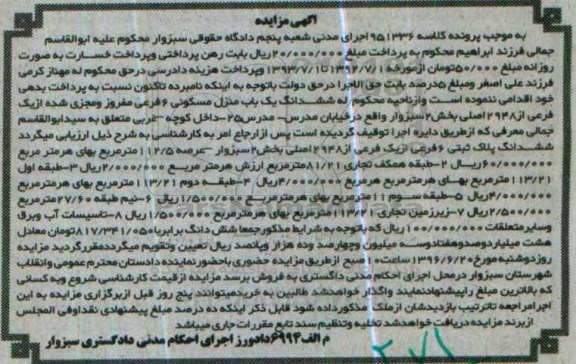 آگهی مزایده
به موجب پرونده کلاسه ۹۵۱۳۳۶ اجرای مدنی شعبه پنجم دادگاه حقوقی سبزوار محکوم علیه ابوالقاسم
جمالی فرزند ابراهیم محکوم به پرداخت مبلغ ۲۰/۰۰۰/۰۰۰ ریال بابت رهن پرداختی وپرداخت خسارت به صورت
روزانه مبلغ ۵۰/۰۰۰ تومان ازمورخه ۱۳۹۲/۷/۱ تا ۱۳۹۳/۷/۱ وپرداخت هزینه دادرسی درحق محکوم له مهناز کرمی
فرزند علی اصغر ومبلغ ۵ درصد بابت حق الاجرا درحق دولت باتوجه به اینکه نامبرده تاکنون نسبت به پرداخت بدهی
خود اقدامی ننموده است وازناحیه محکوم له ششدانگ یک باب منزل مسکونی ۶ فرعی مفروز ومجزی شده ازیک
فرعی از ۲۹۴۸ اصلی بخش ۲ سبزوار واقع درخیابان مدرس- مدرس ۲۵-داخل کوچه -غربی متعلق به سیدابوالقاسم
جمالی معرفی که ازطریق دایره اجرا توقیف گردیده است پس ازارجاع امر به کارشناسی به شرح ذیل ارزیابی میگردد
ششدانگ پلاک ثبتی ۶ فرعی ازیک فرعی از ۲۹۴۸ اصلی بخش ۲ سبزوار -عرصه ۱۱۲/۵ مترمربع بهای هرمتر مربع
۶۰/۰۰۰/۰۰۰ ریال ۲-طبقه همکف تجاری ۸۱/۲۱ مترمربع ارزش هرمتر مربع ۲/۰۰۰/۰۰۰ ریال ۳-طبقه اول
۱۱۳/۲۱ مترمربع بهای هرمتر مربع ۴/۰۰۰/۰۰۰ ریال ۴-طبقه دوم ۱۱۳/۲۱ مترمربع بهای هرمترمربع
۴/۰۰۰/۰۰۰ ریال ۵-طبقه سوم ۱۱ مترمربع بهای هرمترمربع ۱/۵۰۰/۰۰۰ ریال ۶-نیم طبقه ۲۷/۶۰ مترمربع
۲/۵۰۰/۰۰۰ ریال ۷-زیرزمین تجاری ۱۱۳/۲۱ مترمربع بهای هرمترمربع ۱/۵۰۰/۰۰۰ ریال ۸-تاسیسات آب وبرق
وسایرمتعلقات ۱۰۰/۰۰۰/۰۰۰ ریال که باتوجه به شرایط مذکورجمعا شش دانگ برابربا ۸۱۷/۳۴۱/۰۵۰ تومان معادل
هشت میلیاردوصدوهفتادوسه میلیون وچهارصد وده هزار وپانصد ریال تعیین وتقویم میگردد مقررگردید مزایده
روزدوشنبه مورخ ۱۳۹۶/۶/۲۰ ساعت ۱۰ صبح ازطریق مزایده حضوری باحضورنماینده دادستان محترم عمومی وانقلاب
شهرستان سبزوار درمحل اجرای احکام مدنی دادگستری به فروش برسد مزایده ازقیمت کارشناسی شروع وبه کسانی
که بالاترین مبلغ راپیشنهادنمایند واگذار خواهدشد طالبین به خریدمیتوانند پنج روز قبل ازبرگزاری مزایده به این
اجرامراجعه تاترتیب بازدیدشان ازملک مذکورداده شود قابل ذکر اینکه ده درصد مبلغ پیشنهادی نقدا وفی المجلس
ازبرند مزایده دریافت خواهدشد تخلیه وتنظیم سند تابع مقررات جاری میباشد
م الف ۶۹۹۴ دادورز اجرای احکام مدنی دادگستری سبزوار